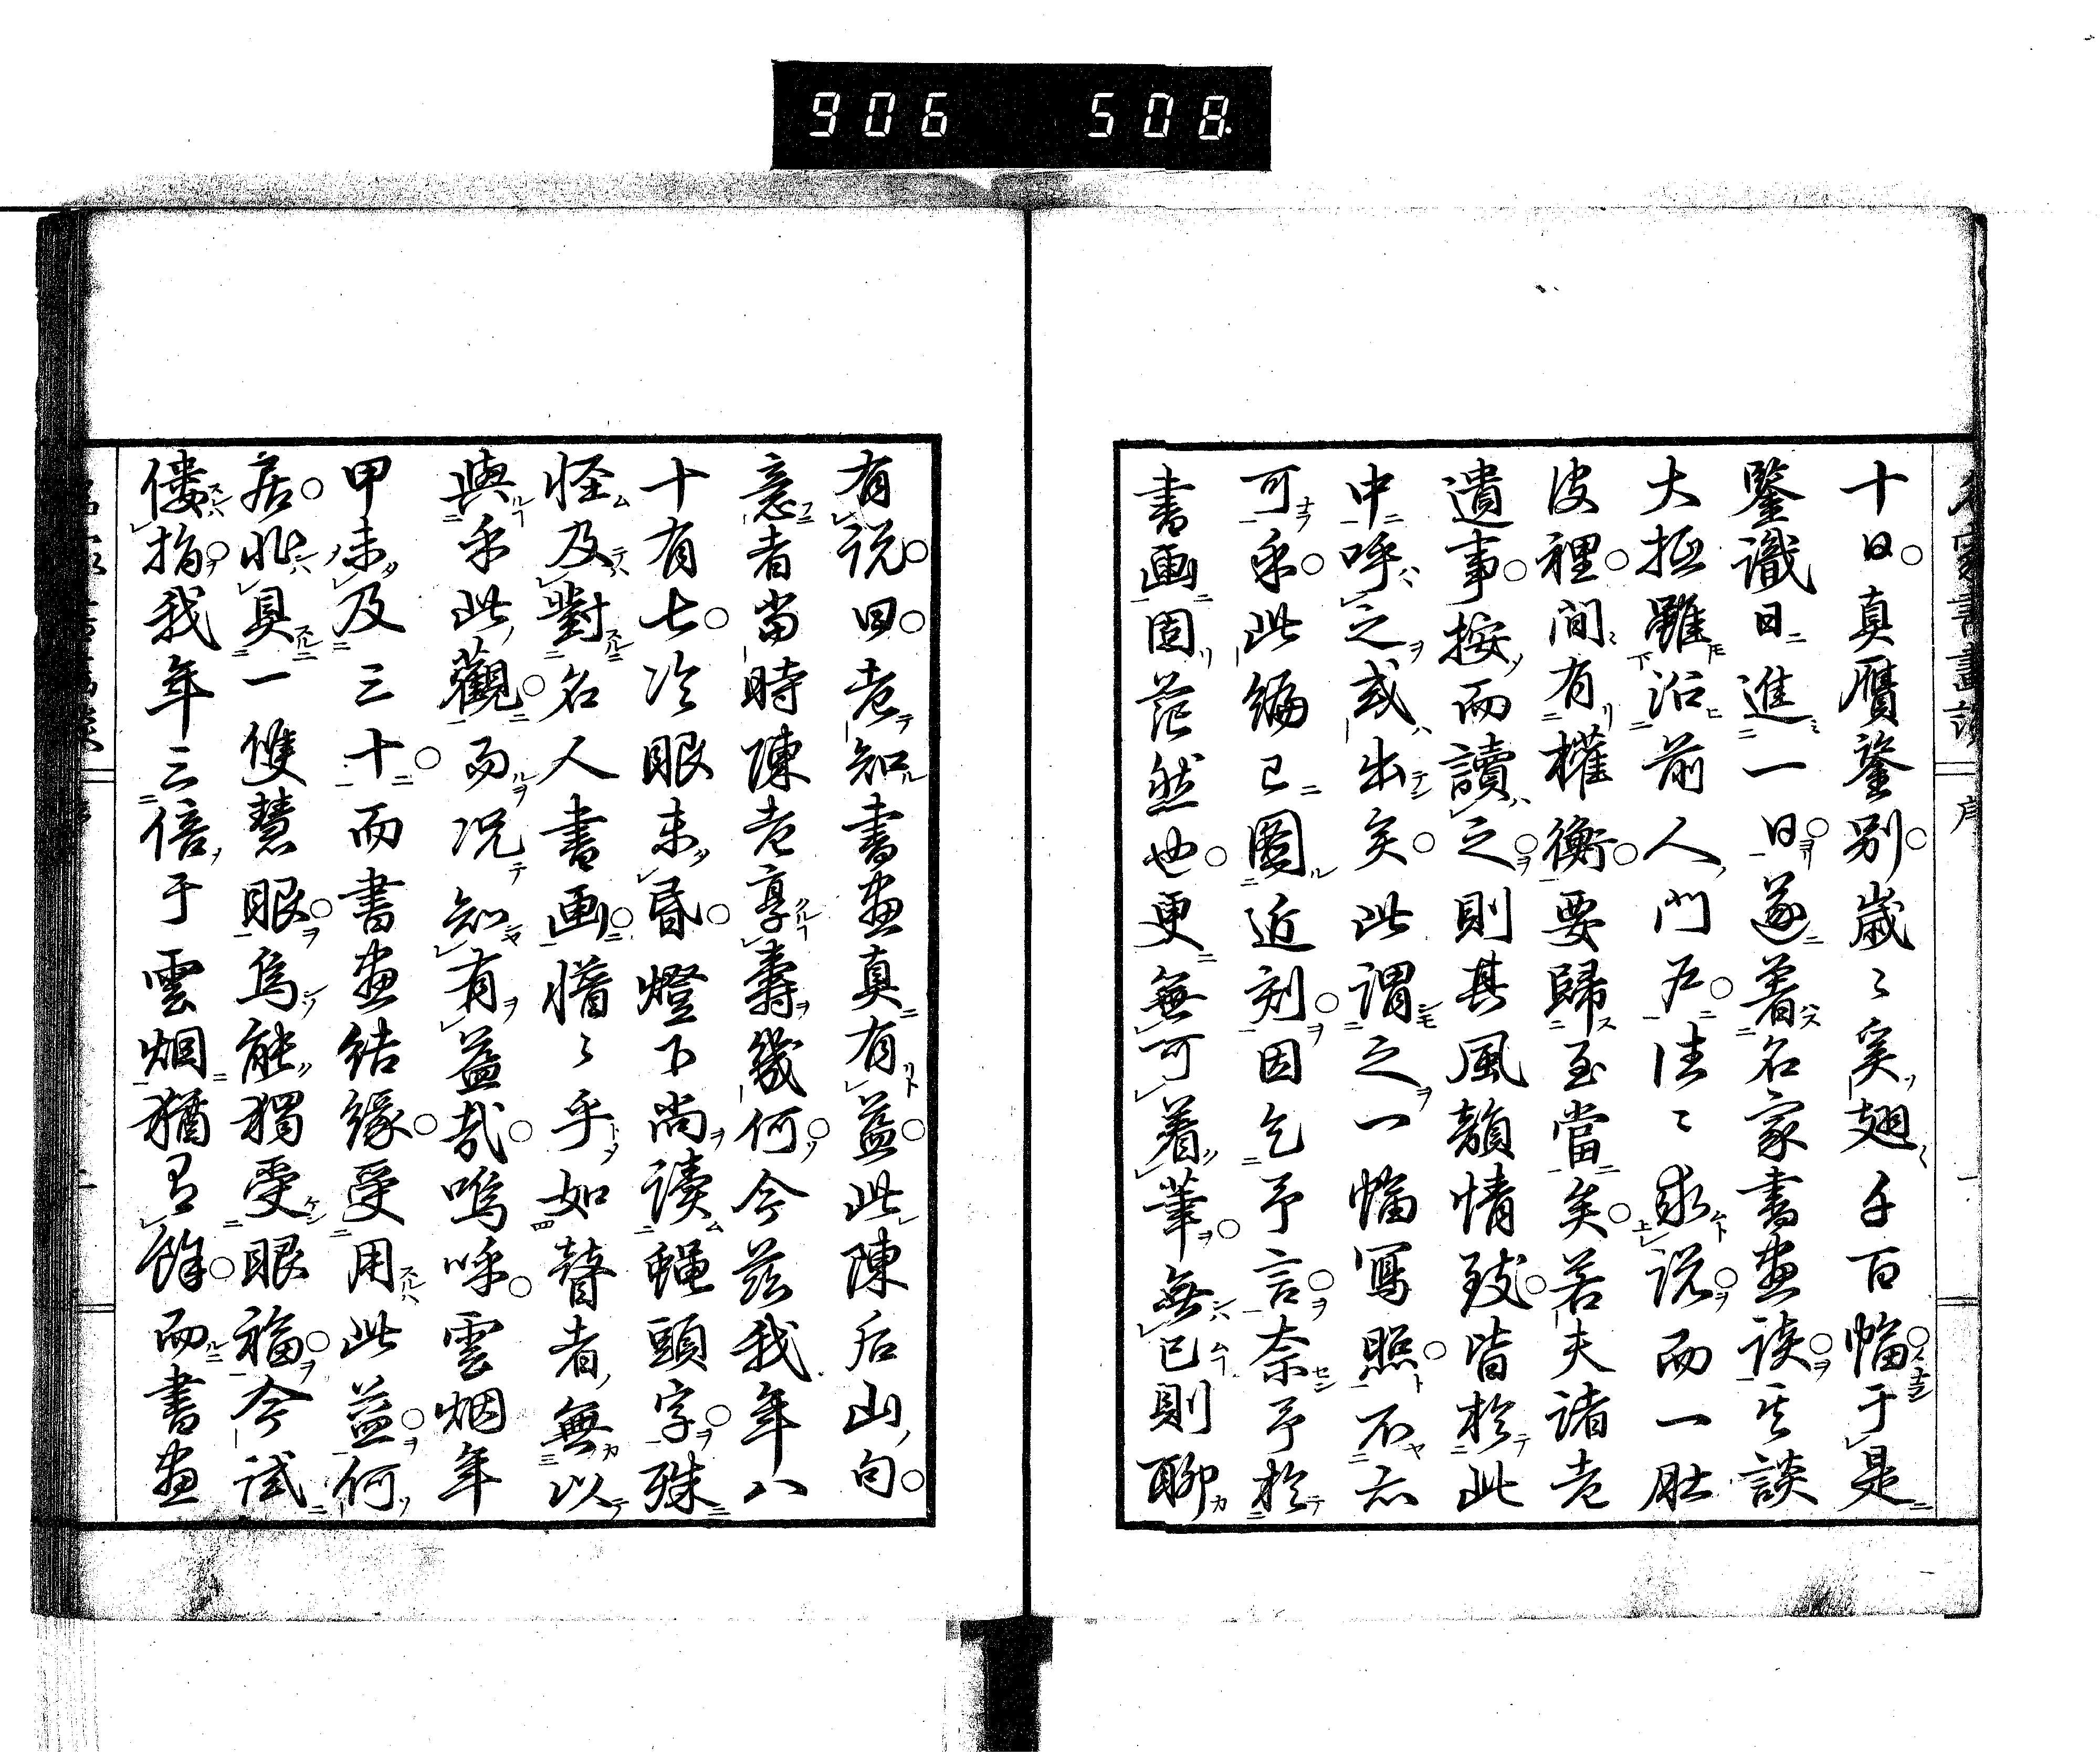 906 508
十日真贋鑒別歲〻矣翅千百幅于是
鑒識日進一日遂著名家書畫談其談
大抵雖沿前人門戶往〻求說而一肚
皮裡間有權衡要歸至當矣若夫諸老
遺事按而讀之則其風韻情致皆於此
中呼之或出矣此謂之一幅寫照不亦
可乎此編已圖近刻因乞予言奈予於
書画固茫然也更無可着筆無已則聊
有說曰老知書畫真有益此陳后山句
意者當時陳老享壽幾何今茲我年八
十有七冷眼未昏燈下尚讀蠅頭字殊
怪及對名人書画惛〻乎如瞽者無以
與乎此觀而况知有益哉嗚呼雲烟年
甲未及三十而書畫結緣受用此益何
居非具一雙慧眼烏能獨受眼福今試
僂指我年三倍于雲烟猶有餘而書畫